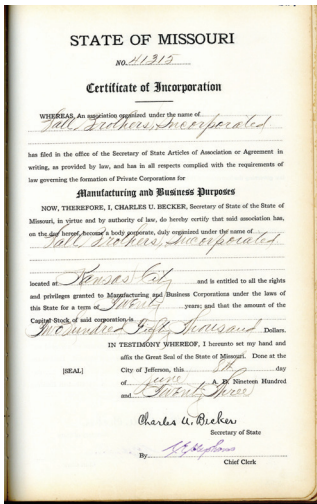 STATE OF MISSOURI
NO. 41315
Certificate of Incorporation
WHEREAS, An association organized under the name of
Hall Brothers, Incorporated
has filed in the office of the Secretary of State Articles of Association or Agreement in
writing, as provided by law, and has in all respects complied with the requirements of
law governing the formation of Private Corporations for
Manufacturing and Business Purposes
NOW, THEREFORE, I, CHARLES U. BECKER, Secretary of State of the State of
Missouri, in virtue and by authority of law, do hereby certify that said association has,
on the day hereof, become a body corporate, duly organized under the name of
Hall Brothers, Incorporated
located at Kansas City and is entitled to all the rights
and privileges granted to Manufacturing and Business Corporations under the laws of
this State for a term of Twenty years; and that the amount of the
Capital Stock of said corporation is
Two Hundred Fifty Thousand Dollars.
IN TESTIMONY WHEREOF, I hereunto set my hand and
affix the Great Seal of the State of Missouri. Done at the
[SEAL] City of Jefferson, this 8th day
of June A. D. Nineteen Hundred
and Twenty Three
Charles U. Becker
Secretary of State
By
Chief Clerk